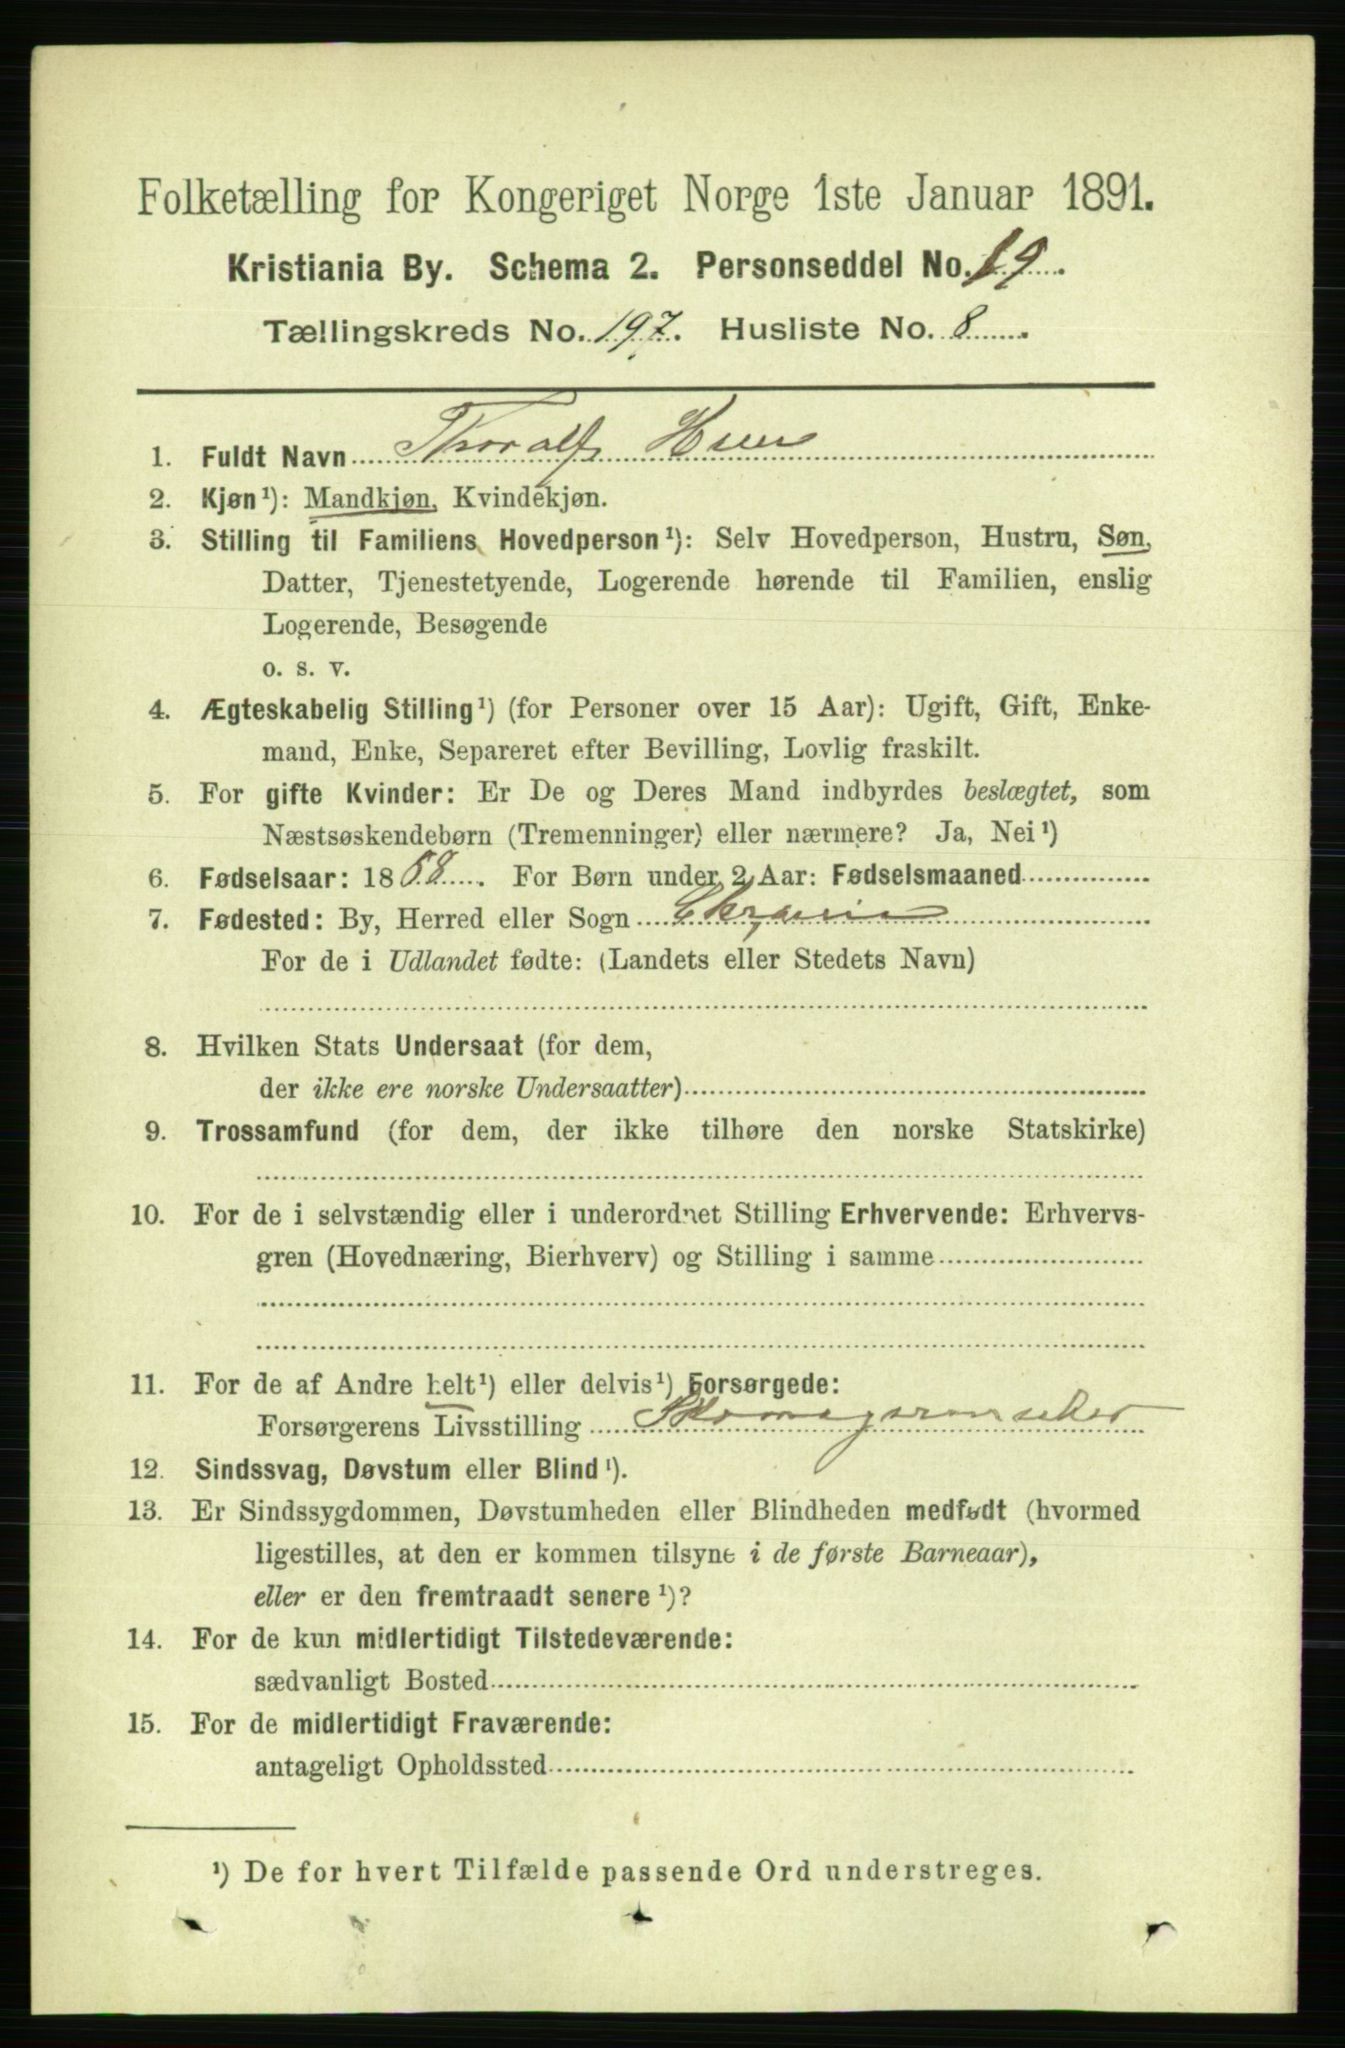 Folketælling for Kongeriget Norge 1ste Januar 1891.
Kristiania By. Schema 2. Personseddel No. 19
Tællingskreds No. 197. Husliste No. 8
1. Fuldt Navn Thoralf
2. Kjøn¹): Mandkjøn, Kvindekjøn.
3. Stilling til Familiens Hovedperson¹): Selv Hovedperson, Hustru, Søn,
Datter, Tjenestetyende, Logerende hørende til Familien, enslig
Logerende, Besøgende
o. s. v.
4. Ægteskabelig Stilling¹) (for Personer over 15 Aar): Ugift, Gift, Enke-
mand, Enke, Separeret efter Bevilling, Lovlig fraskilt.
5. For gifte Kvinder: Er De og Deres Mand indbyrdes beslægtet, som
Næstsøskendebørn (Tremenninger) eller nærmere? Ja, Nei¹)
6. Fødselsaar: 18 For Børn under 2 Aar: Fødselsmaaned
7. Fødested: By, Herred eller Sogn
For de i Udlandet fødte: (Landets eller Stedets Navn)
8. Hvilken Stats Undersaat (for dem,
der ikke ere norske Undersaatter)
9. Trossamfund (for dem, der ikke tilhøre den norske Statskirke)
10. For de i selvstændig eller i underordnet Stilling Erhvervende: Erhvervs-
gren (Hovednæring, Bierhverv) og Stilling i samme
11. For de af Andre helt¹) eller delvis¹) Forsørgede:
Forsørgerens Livsstilling
12. Sindssvag, Døvstum eller Blind¹).
13. Er Sindssygdommen, Døvstumheden eller Blindheden medfødt (hvormed
ligestilles, at den er kommen tilsyne i de første Barneaar),
eller er den fremtraadt senere¹)?
14. For de kun midlertidigt Tilstedeværende:
sædvanligt Bosted
15. For de midlertidigt Fraværende:
antageligt Opholdssted
¹) De for hvert Tilfælde passende Ord understreges.